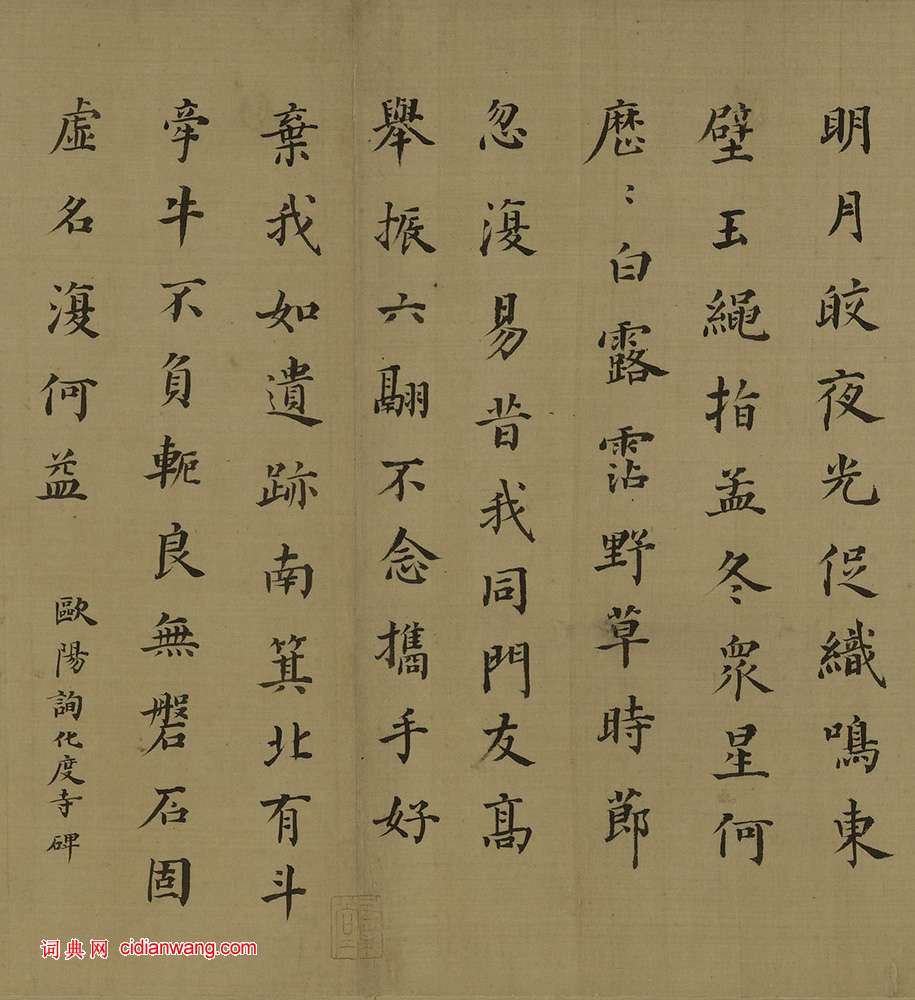 明月皎夜光促織鳴東
壁玉繩指孟冬衆星何
歷〻白露霑野草時節
忽復易昔我同門友髙
舉振六翮不念攜手好
棄我如遺跡南箕北有斗
牽牛不負軛良無磐石固
虛名復何益
歐陽詢化度寺碑
词典网 cidianwang.com